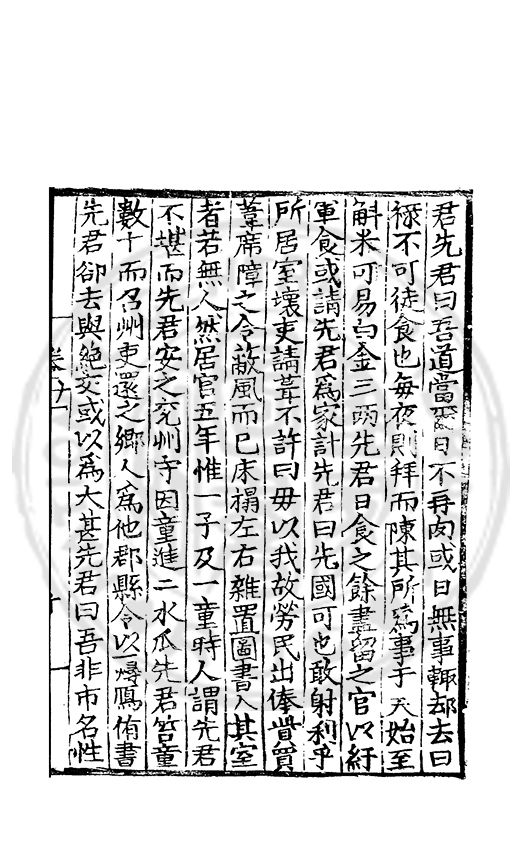 君先君曰吾道當爾日不再肉或日無事輒却去曰
祿不可徒食也每夜則拜而陳其所爲事于天始至
斛米可易白金三两先君日食之餘盡留之官以紓
軍食或請先君爲家計先君曰先國可也敢射利乎
所居室壞吏請葺不許曰毋以我故勞民出俸貲買
葦席障之令蔽風而已床榻左右雜置圖書入其室
者若無人然居官五年惟一子及一童時人謂先君
不堪而先君安之兖州守因童進二水瓜先君笞童
數十而召州吏還之鄉人爲他郡縣令以燖鴈侑書
先君卻去與絶交或以爲大甚先君曰吾非市名性